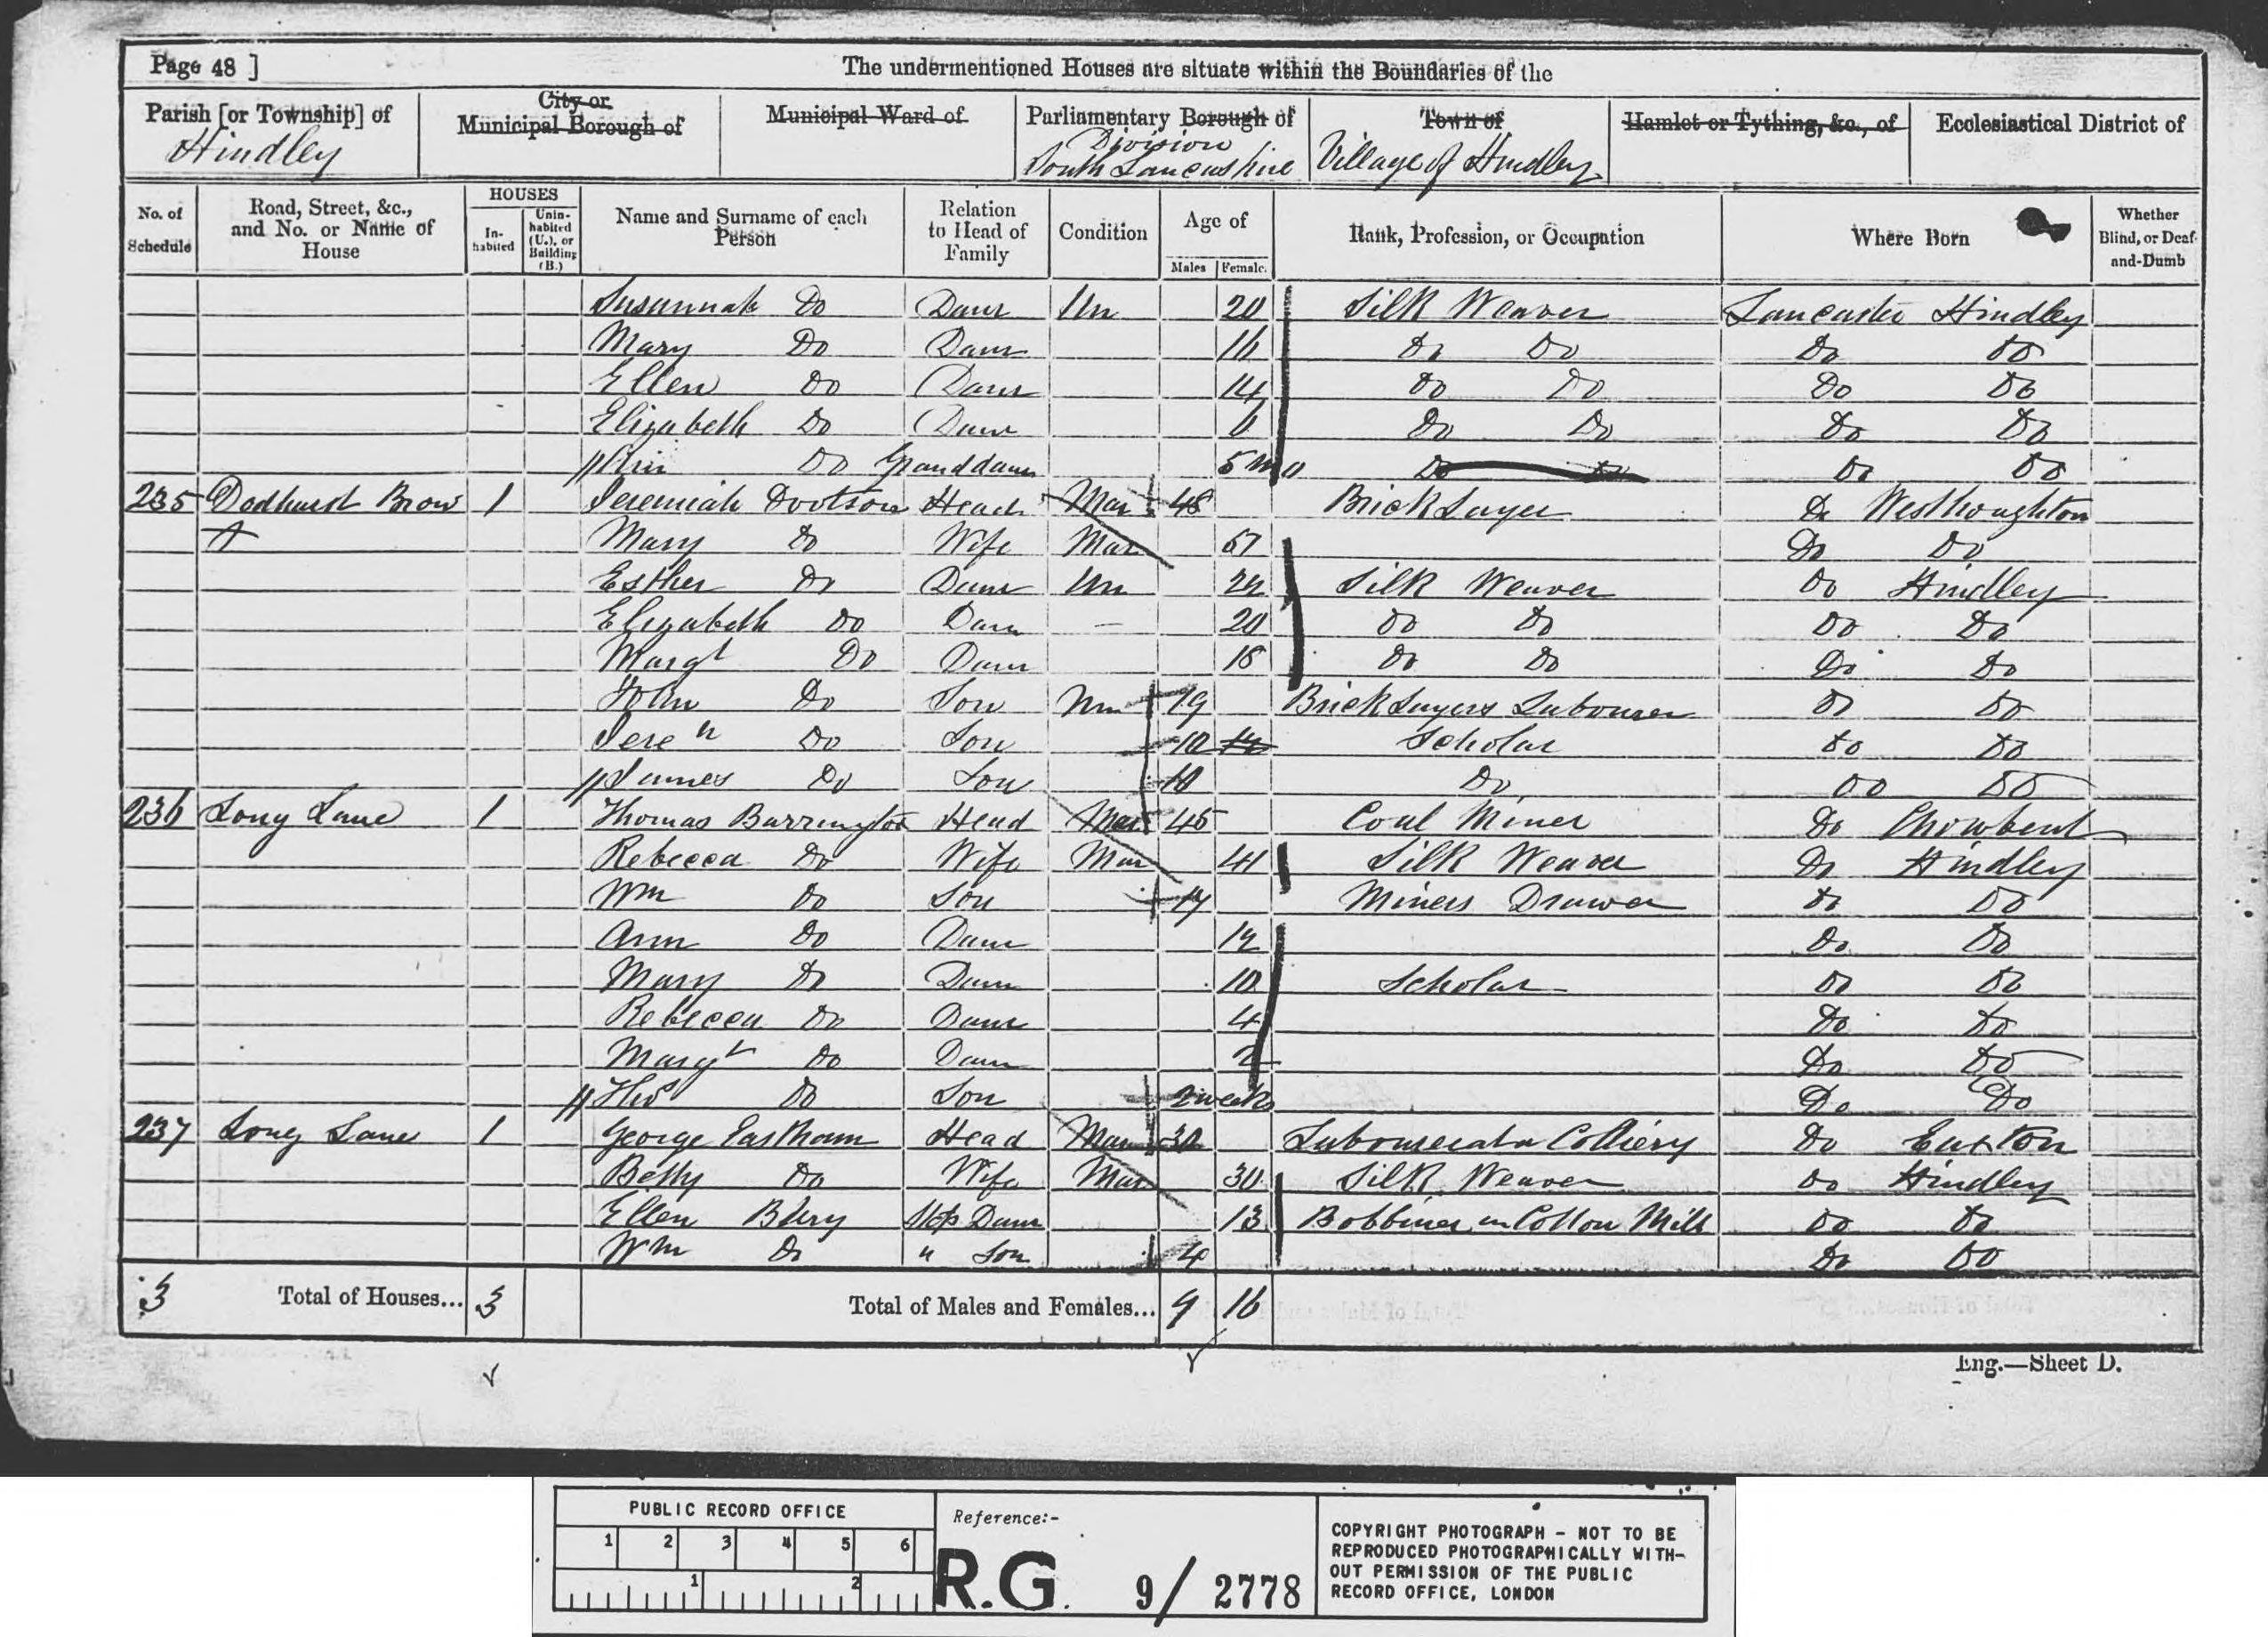 Page 48 ]
The undermentioned Houses are situate within the Boundaries of the
Parish [or Township] of Hindley
City or Municipal Borough of
Municipal Ward of
Parliamentary Borough of Division South Lancashire
Town of Village of Hindley
Hamlet or Tything, &c., of
Ecclesiastical District of
No. of Schedule
Road, Street, &c., and No. or Name of House
HOUSES
In-habited
Unin-habited (U.), or Building (B.)
Name and Surname of each Person
Relation to Head of Family
Condition
Age of
Males Females
Rank, Profession, or Occupation
Where Born
Whether Blind, or Deaf-and-Dumb
Susannah Do Daur Un 20 Silk Weaver Lancaster Hindley
Mary Do Daur 16 Do Do Do Do
Ellen Do Daur 14 Do Do Do Do
Elizabeth Do Daur Do Do Do Do
// Ann Do Granddaur 5 m Do Do Do Do
235 Dodhurst Brow 1 Jeremiah Dootson Head Mar 48 Brick Layer Do Westhoughton
Mary Do Wife Mar Do Do
Esther Do Daur Un Silk Weaver Do Hindley
Elizabeth Do Daur 20 Do Do Do Do
Margt Do Daur 18 Do Do Do Do
John Do Son Un 19 Bricklayers Labourer Do Do
Jereh Do Son 12 Scholar Do Do
// James Do Son 10 Do Do Do
236 Long Lane 1 Thomas Barrington Head Mar 45 Coal Miner Do Chowbent
Rebecca Do Wife Mar 41 Silk Weaver Do Hindley
Wm Do Son 17 Miners Drawer Do Do
Ann Do Daur 12 Do Do
Mary Do Daur 10 Scholar Do Do
Rebecca Do Daur 4 Do Do
Margt Do Daur 2 Do Do
// Thos Do Son 2 weeks Do Do
237 Long Lane 1 George Eastham Head Mar 32 Labourer at a Colliery Do Euxton
Betty Do Wife Mar 30 Silk Weaver Do Hindley
Ellen Bury Step Daur 13 Bobbiner in Cotton Mill Do Do
Wm Do " Son 4 Do Do
3 Total of Houses... 3 Total of Males and Females... 9 16
Eng.—Sheet D.
PUBLIC RECORD OFFICE
1 2 3 4 5 6
1 2
Reference:-
R.G. 9/ 2778
COPYRIGHT PHOTOGRAPH - NOT TO BE
REPRODUCED PHOTOGRAPHICALLY WITH-
OUT PERMISSION OF THE PUBLIC
RECORD OFFICE, LONDON